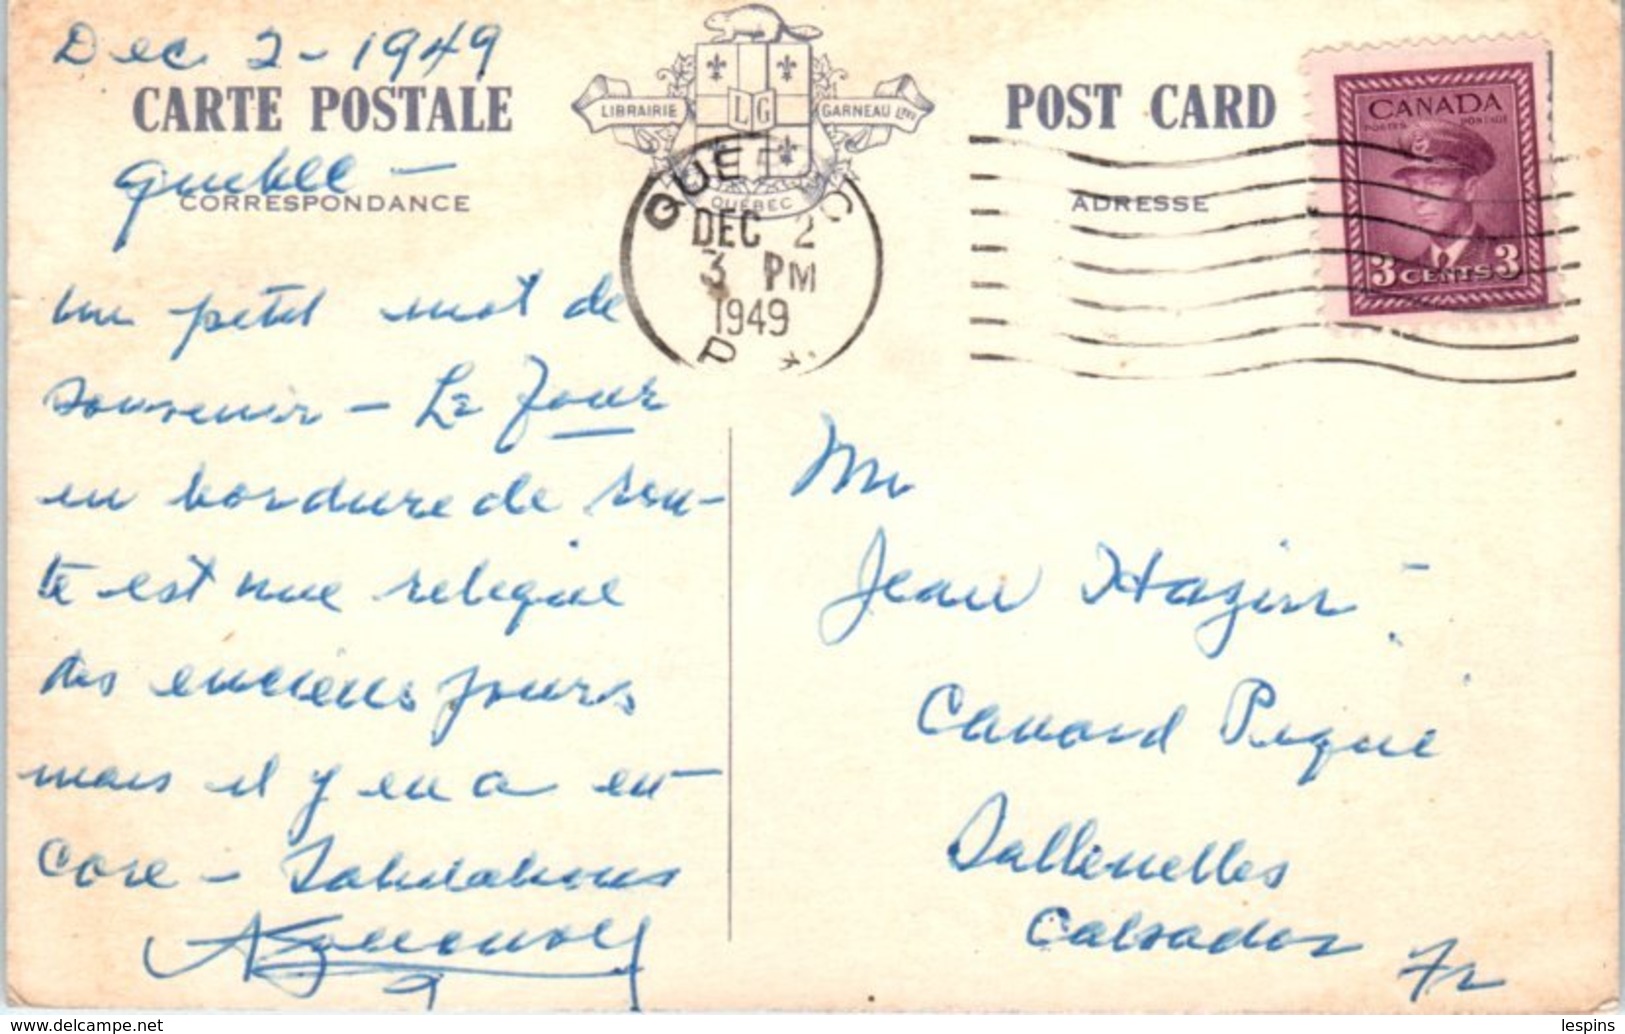 Dec. 2 - 1949
CARTE POSTALE
Québec -
CORRESPONDANCE
LIBRAIRIE
LG
GARNEAU Ltée
QUÉBEC
QUEBEC
DEC 2
3 PM
1949
P
POST CARD
ADRESSE
CANADA
POSTES POSTAGE
3 CENTS 3
un petit mot de
souvenir - Le Four
en bordure de rou-
te est une relique
des anciens jours
mais il y en a en-
core - Salutations
Mr
Jean
Canard Piqué
Sallenelles
Calvados Fr
lespins
www.delcampe.net